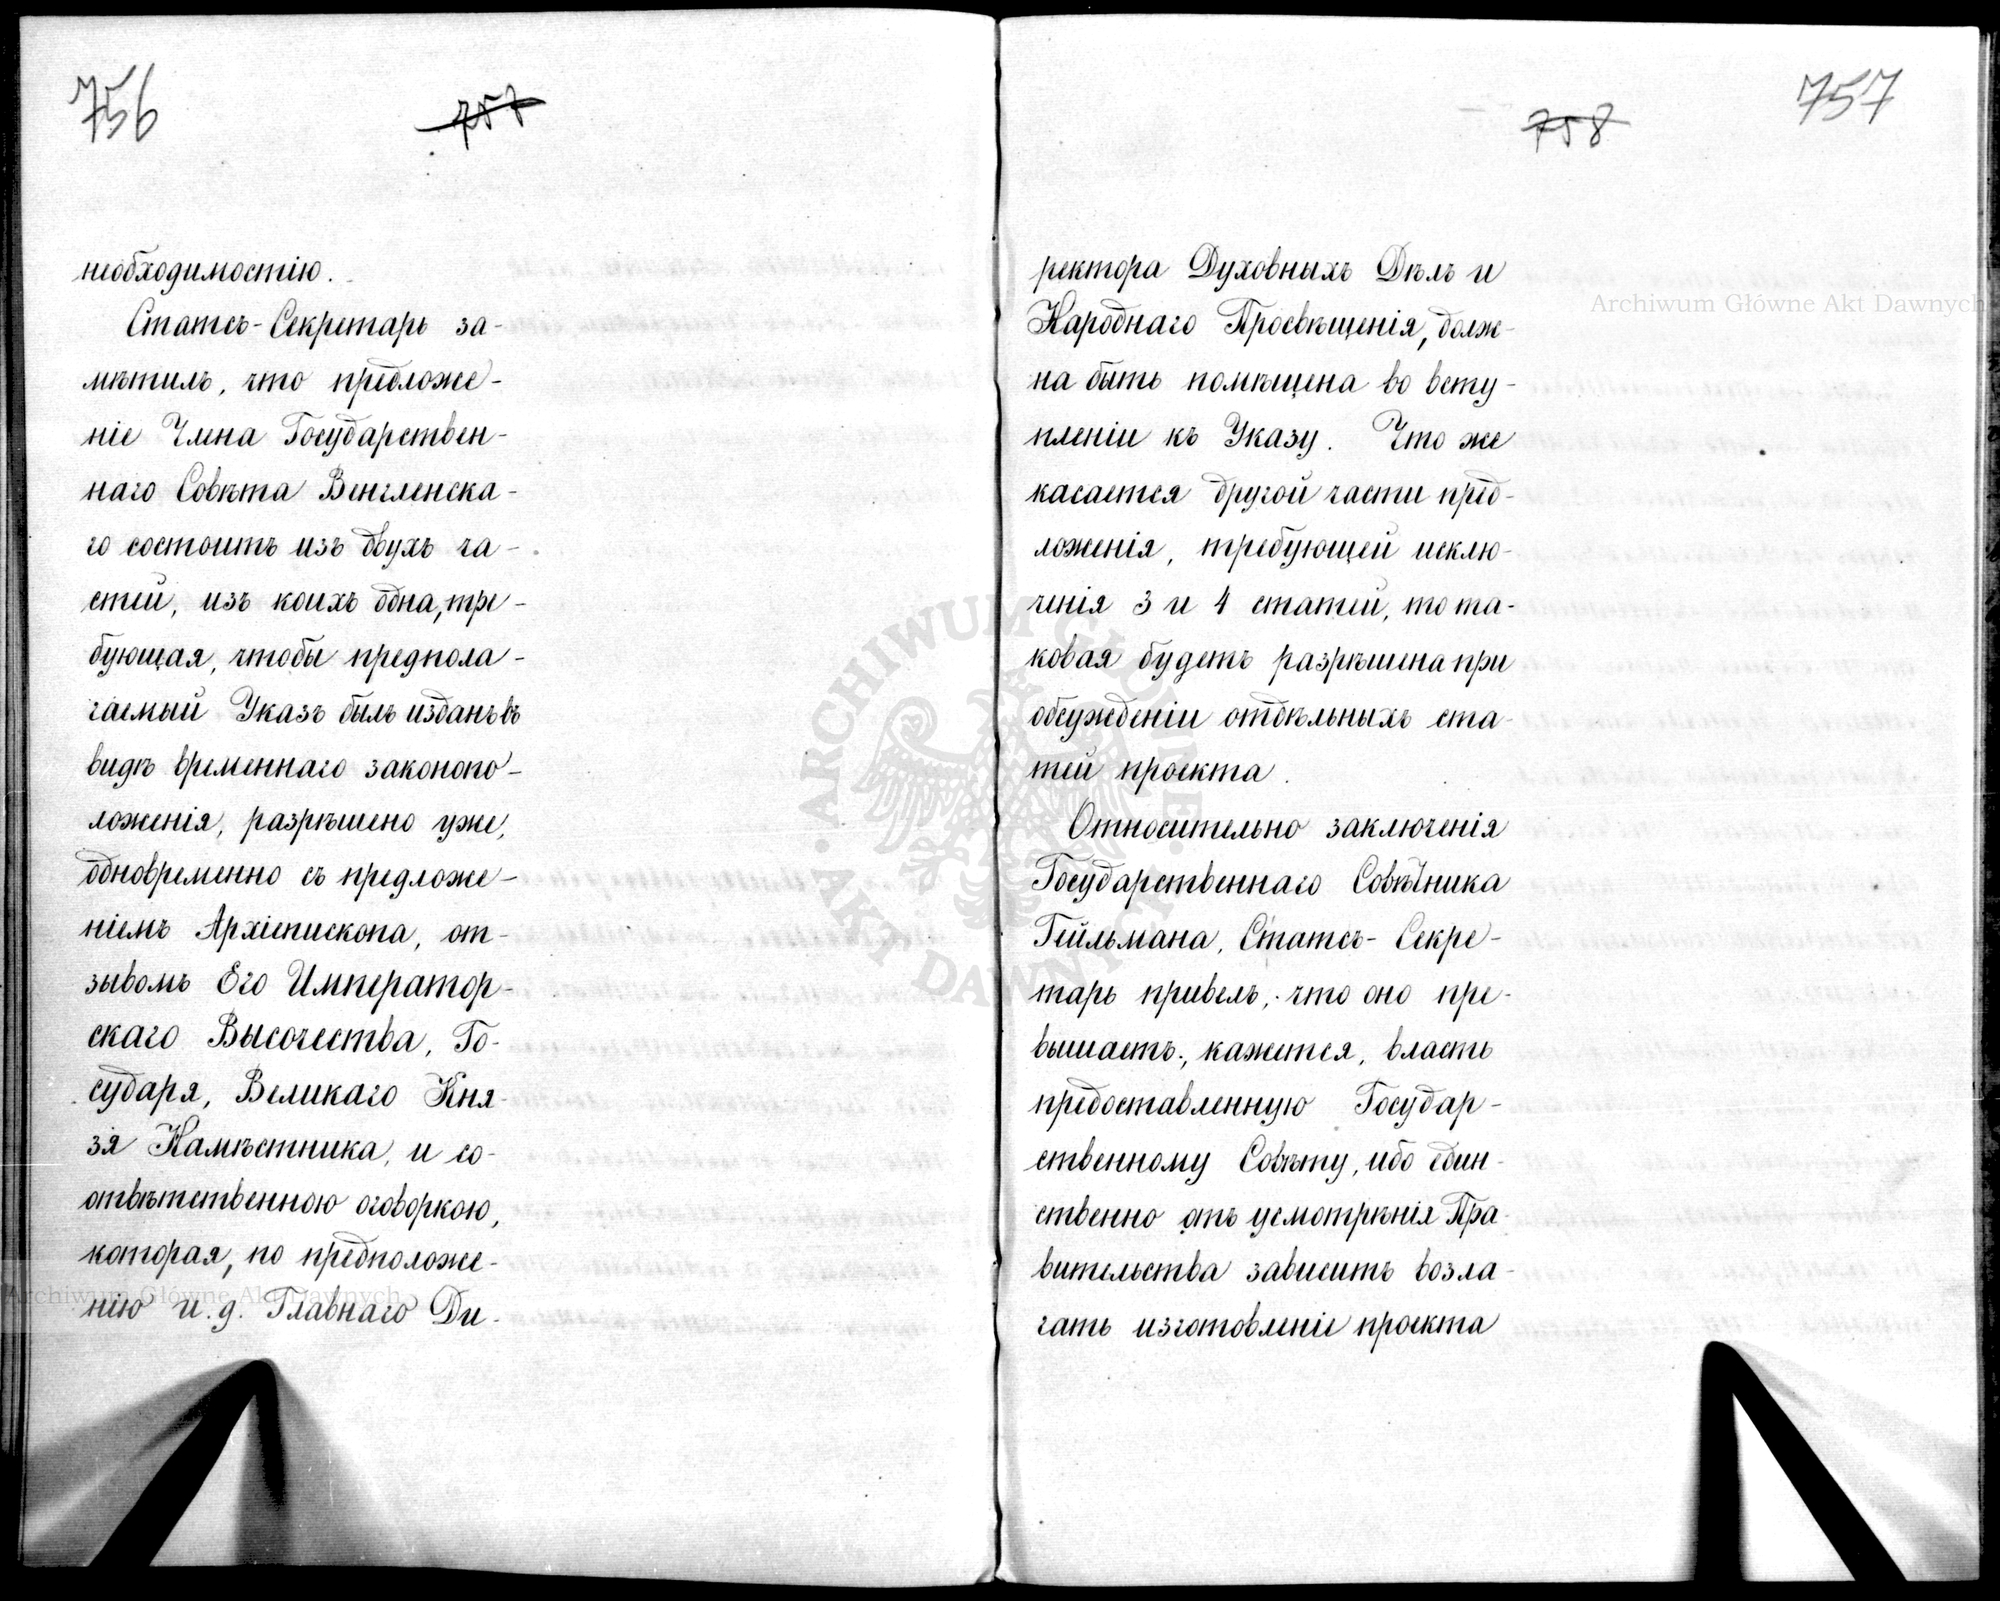 756
757
необходимостію.
Статсъ-Секретарь за-
мѣтилъ, что предложе-
ніе Члена Государствен-
наго Совѣта Венгленска-
го состоитъ изъ двухъ ча-
стей, изъ коихъ одна, тре-
бующая, чтобы предпола-
гаемый Указъ былъ изданъ въ
видѣ временнаго законопо-
ложенія, разрѣшено уже,
одновременно съ предложе-
ніемъ Архіепископа, от-
зывомъ Его Император-
скаго Высочества, Го-
сударя, Великаго Кня-
зя Намѣстника, и со-
отвѣтственною оговоркою,
которая, по предположе-
нію и. д. Главнаго Ди-
758
757
ректора Духовныхъ Дѣлъ и
Народнаго Просвѣщенія, долж-
на быть помѣщена во всту-
пленіи къ Указу. Что же
касается другой части пред-
ложенія, требующей исклю-
ченія 3 и 4 статей, то та-
ковая будетъ разрѣшена при
обсужденіи отдѣльныхъ ста-
тей проекта.
Относительно заключенія
Государственнаго Совѣтника
Гейльмана, Статсъ-Секре-
тарь привелъ, что оно пре-
вышаетъ, кажется, власть
предоставленную Государ-
ственному Совѣту, ибо един-
ственно отъ усмотрѣнія Пра-
вительства зависитъ возла-
гать изготовленіе проекта
Archiwum Główne Akt Dawnych
Archiwum Główne Akt Dawnych
ARCHIWUM GŁÓWNE AKT DAWNYCH